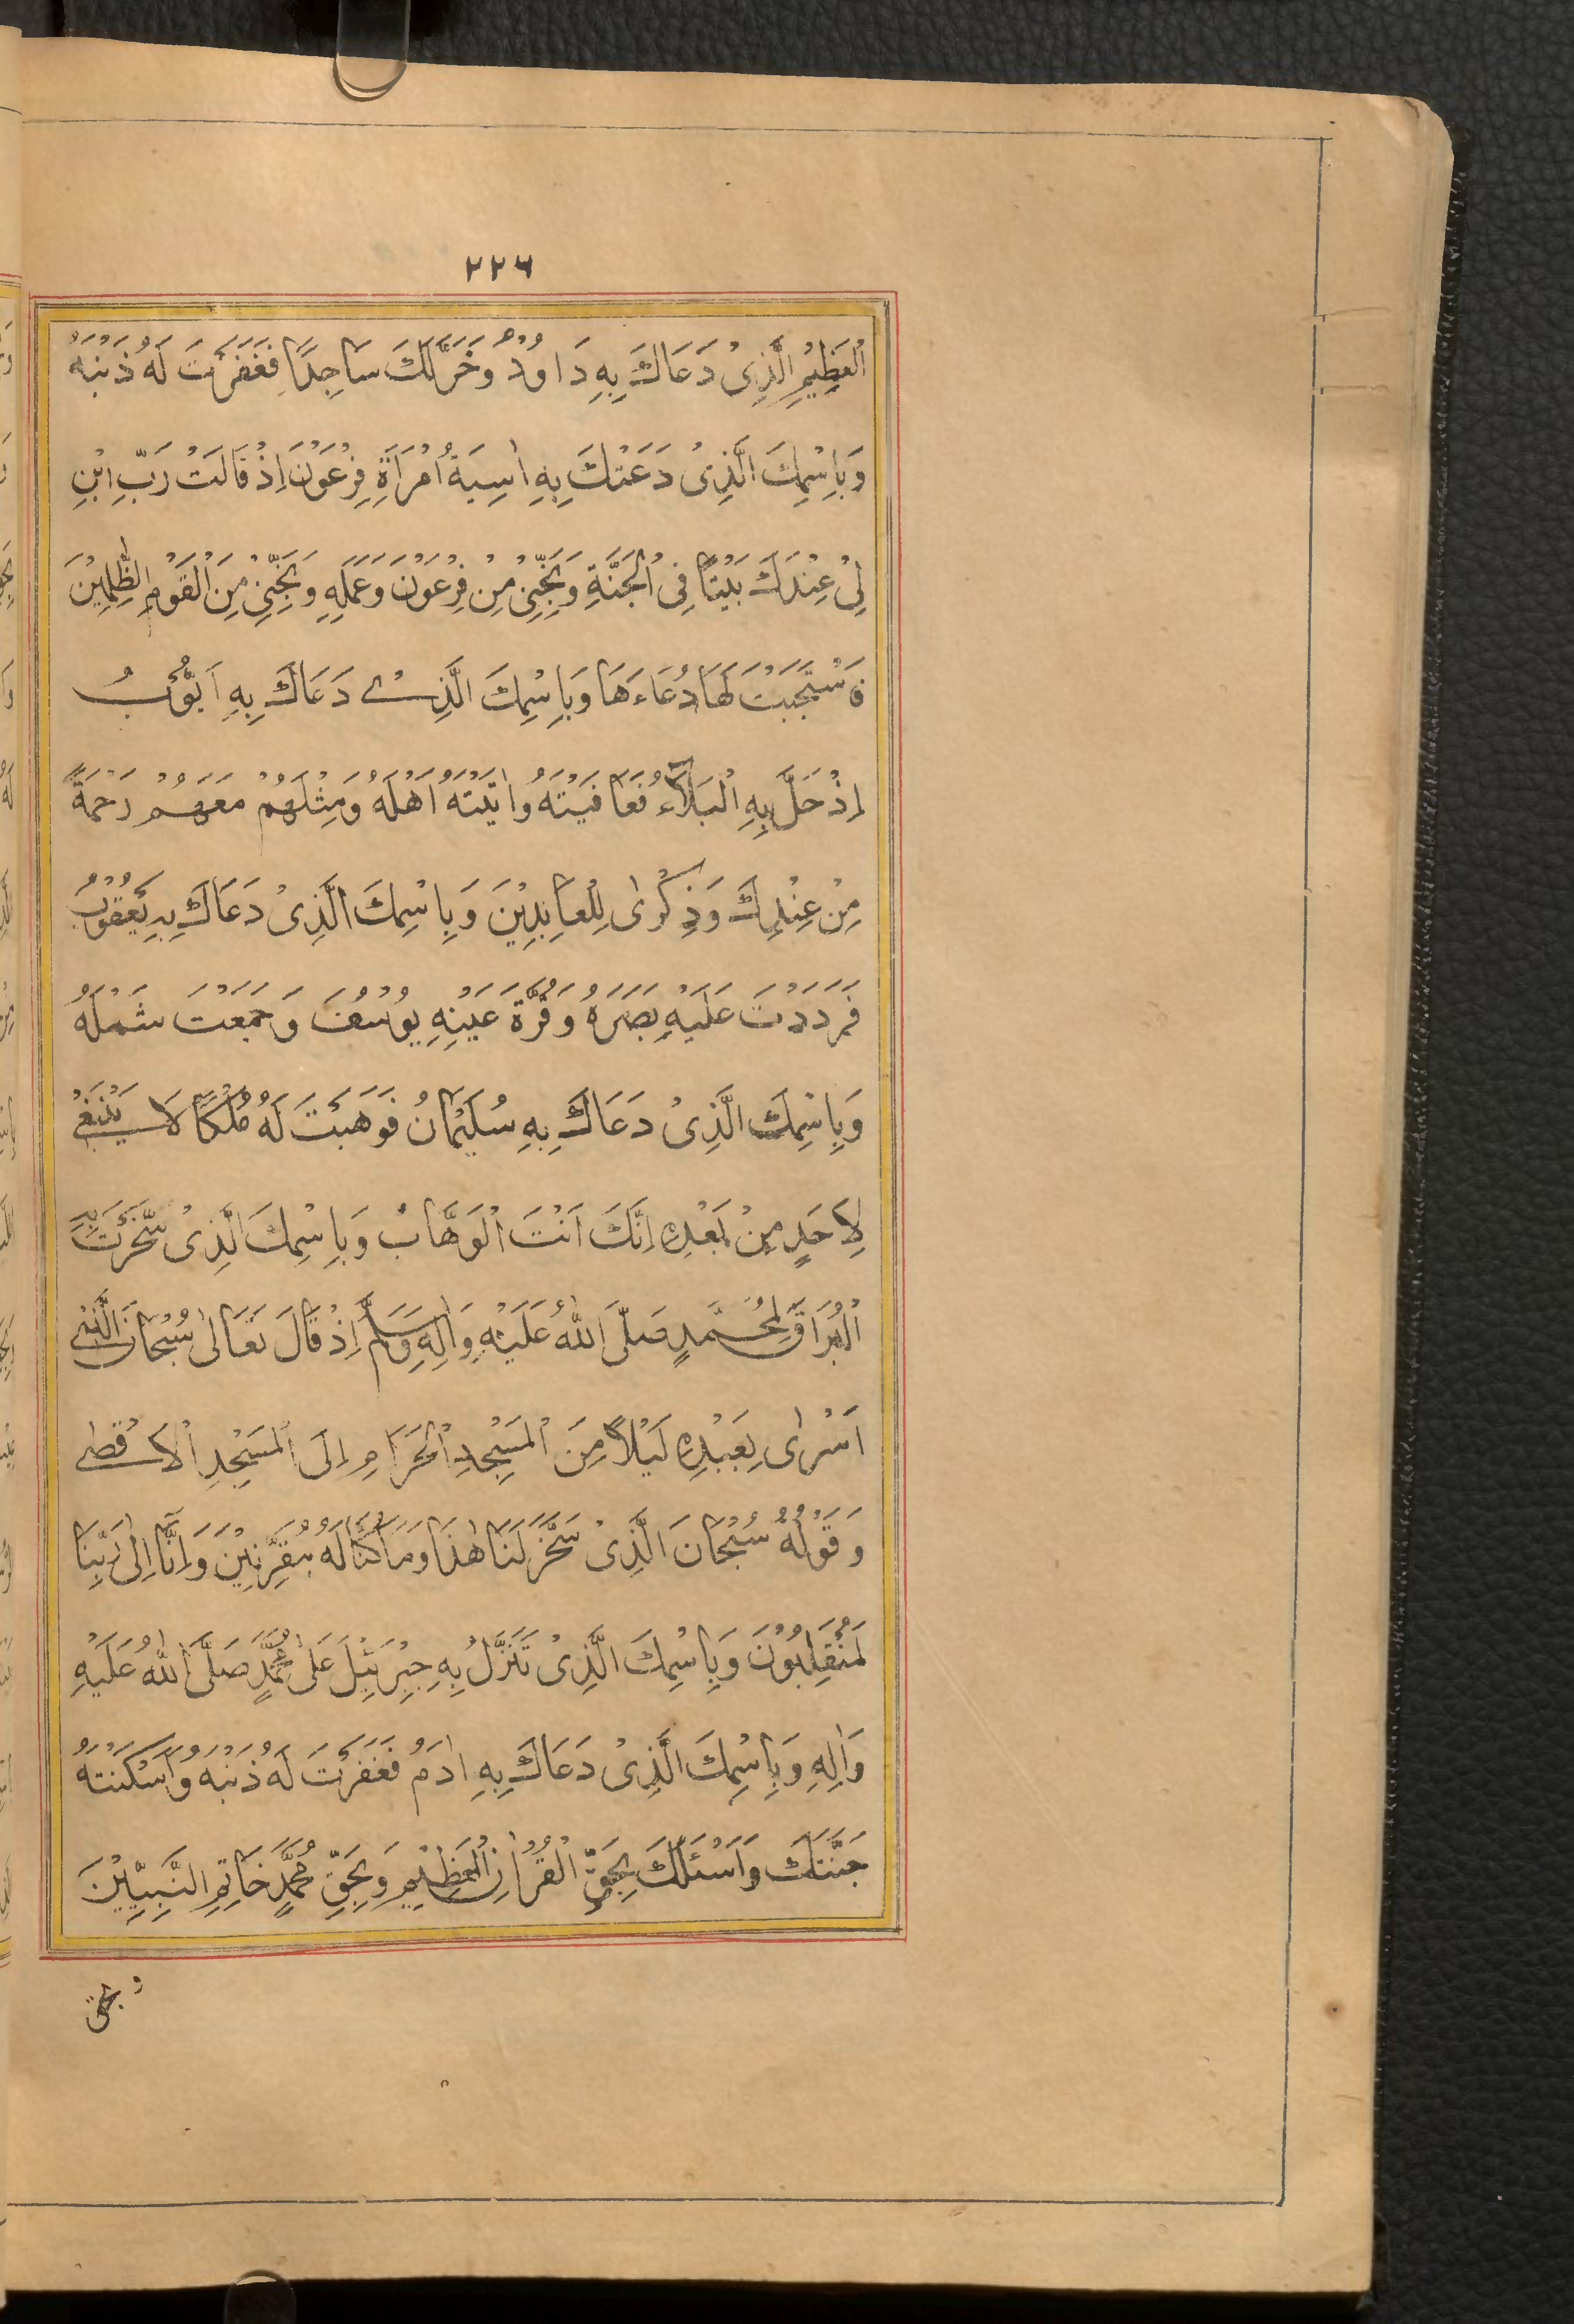 ٢٢٦
الْعَظِيْمِ الَّذِىْ دَعَاكَ بِهِ دَاوُدُ وَخَرَّ لَكَ سَاجِدًا فَغَفَرْتَ لَهُ ذَنْبَهُ
وَبِاسْمِكَ الَّذِىْ دَعَتْكَ بِهِ اٰسِيَةُ امْرَاَةِ فِرْعَوْنَ اِذْ قَالَتْ رَبِّ ابْنِ
لِىْ عِنْدَكَ بَيْتًا فِى الْجَنَّةِ وَنَجِّنِىْ مِنْ فِرْعَوْنَ وَعَمَلِهِ وَنَجِّنِىْ مِنَ الْقَوْمِ الظّٰلِمِيْنَ
فَاسْتَجَبْتَ لَهَا دُعَاءَهَا وَبِاسْمِكَ الَّذِىْ دَعَاكَ بِهِ اَيُّوْبُ
اِذْ حَلَّ بِهِ الْبَلَآءُ فَعَافَيْتَهُ وَاٰتَيْتَهُ اَهْلَهُ وَمِثْلَهُمْ مَعَهُمْ رَحْمَةً
مِنْ عِنْدِكَ وَذِكْرٰى لِلْعَابِدِيْنَ وَبِاسْمِكَ الَّذِىْ دَعَاكَ بِهِ يَعْقُوْبُ
فَرَدَدْتَ عَلَيْهِ بَصَرَهُ وَقُرَّةَ عَيْنِهِ يُوْسُفَ وَجَمَعْتَ شَمْلَهُ
وَبِاسْمِكَ الَّذِىْ دَعَاكَ بِهِ سُلَيْمَانُ فَوَهَبْتَ لَهُ مُلْكًا لَا يَنْبَغِىْ
لِاَحَدٍ مِنْ بَعْدِهِ اِنَّكَ اَنْتَ الْوَهَّابُ وَبِاسْمِكَ الَّذِىْ سَخَّرْتَ بِهِ
الْبُرَاقَ لِمُحَمَّدٍ صَلَّى اللهُ عَلَيْهِ وَاٰلِهِ وَسَلَّمَ اِذْ قَالَ تَعَالىٰ سُبْحَانَ الَّذِىْ
اَسْرٰى بِعَبْدِهِ لَيْلًا مِنَ الْمَسْجِدِ الْحَرَامِ اِلَى الْمَسْجِدِ الْاَقْصٰى
وَقَوْلُهُ سُبْحَانَ الَّذِىْ سَخَّرَ لَنَا هٰذَا وَمَا كُنَّا لَهُ مُقْرِنِيْنَ وَاِنَّا اِلىٰ رَبِّنَا
لَمُنْقَلِبُوْنَ وَبِاسْمِكَ الَّذِىْ تَنَزَّلَ بِهِ جِبْرَئِيْلُ عَلىٰ مُحَمَّدٍ صَلَّى اللهُ عَلَيْهِ
وَاٰلِهِ وَبِاسْمِكَ الَّذِىْ دَعَاكَ بِهِ اٰدَمُ فَغَفَرْتَ لَهُ ذَنْبَهُ وَاَسْكَنْتَهُ
جَنَّتَكَ وَاَسْئَلُكَ بِحَقِّ الْقُرْاٰنِ الْعَظِيْمِ وَبِحَقِّ مُحَمَّدٍ خَاتِمِ النَّبِيِّيْنَ
وبحق